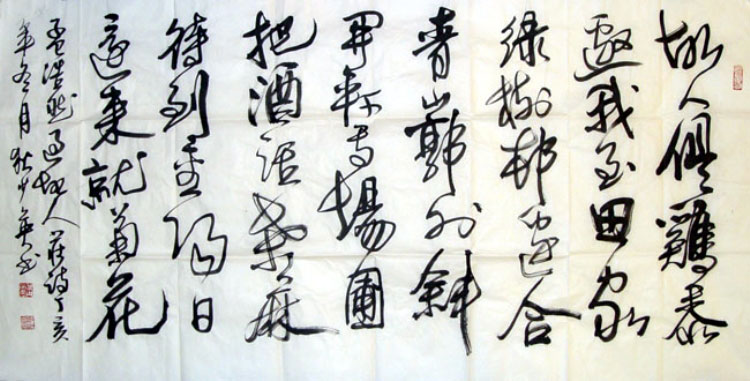 故人俱鷄黍
邀我至田家
綠樹邨邊合
青山郭外斜
開軒面場圃
把酒話桑麻
待到重陽日
還來就菊花
孟浩然過故人莊詩丁亥
年冬月狄少英书